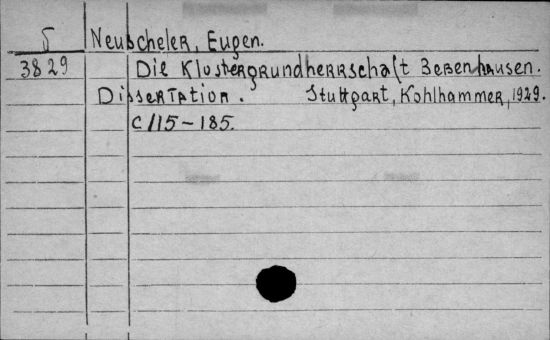 5 Neuscheler, Eugen.
3829 Die Klostergrundherrschaft Bebenhausen.
Dissertation. Stuttgart, Kohlhammer, 1929.
C 115-185.